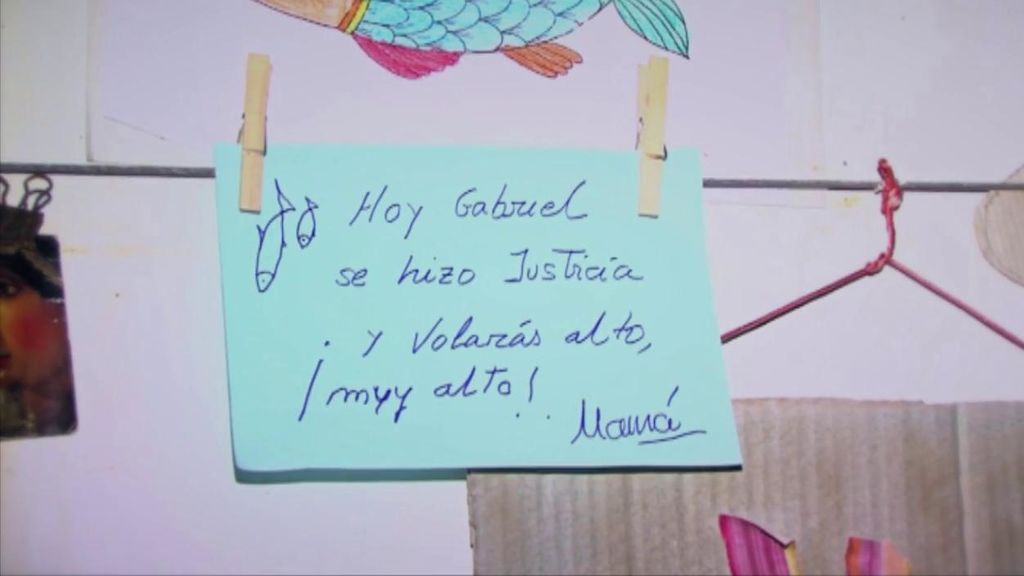 Hoy Gabriel
se hizo Justicia
y Volarás alto,
¡muy alto!
Mamá